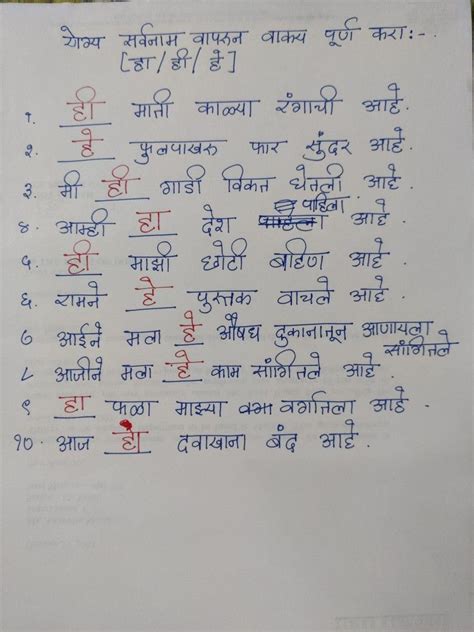 योग्य सर्वनाम वापरुन वाक्य पूर्ण करा:-
[हा/ही/हे]
१. ही माती काळ्या रंगाची आहे.
२. हे फुलपाखरु फार सुंदर आहे.
३. मी ही गाडी विकत घेतली आहे.
४. आम्ही हा देश पहिला आहे.
५. ही माझी छोटी बहिण आहे.
६. रामने हे पुस्तक वाचले आहे.
७ आईने मला हे औषध दुकानातून आणायला
सांगितले
८ आजीने मला हे काम सांगितले आहे.
९ हा फळा माझ्या वर्गातला आहे.
१० आज हा दवाखाना बंद आहे.